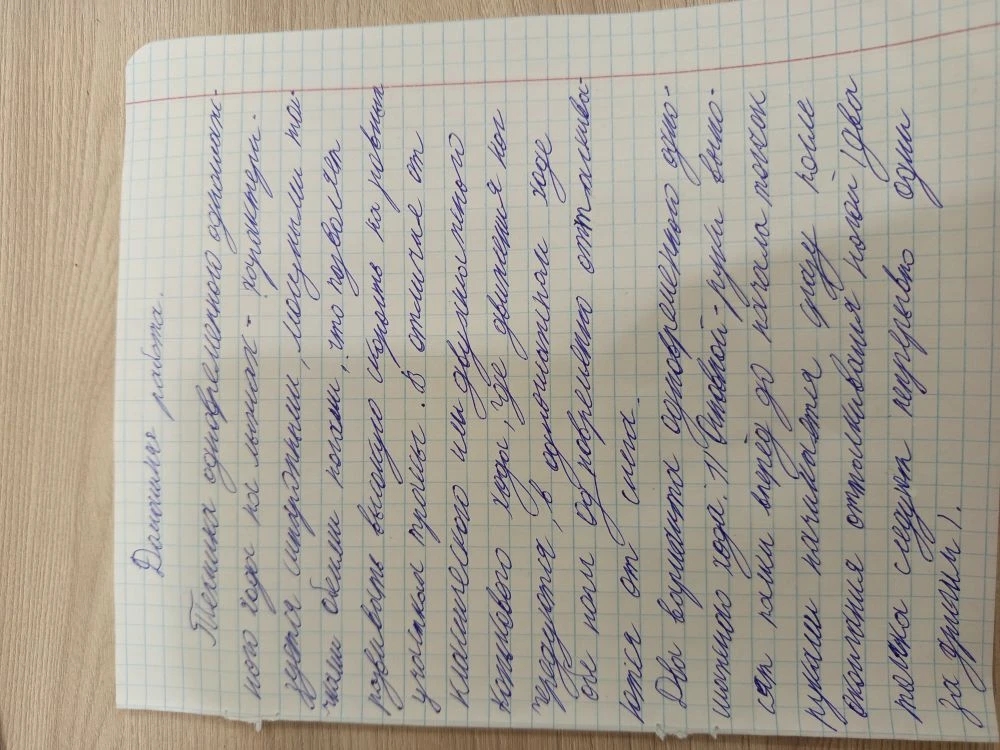 Домашняя работа.
Техника одновременного одношаж-
ного хода на лыжах - характери-
зуется широкими, мощными тол-
чками обеими ногами, что позволяет
развивать высокую скорость на ровных
участках трассы. В отличие от
классического или двухшажного
конькового хода, где движения ног
чередуются, в одношажном ходе
обе ноги одновременно отталкива-
ются от снега.
Два варианта одновременного одно-
шажного хода. 1) Стартовый - руки выно-
сят палки вперёд до начала толчок
руками начинается сразу после
окончания отталкивания ногой (два
толчка следуют непрерывно один
за другим).